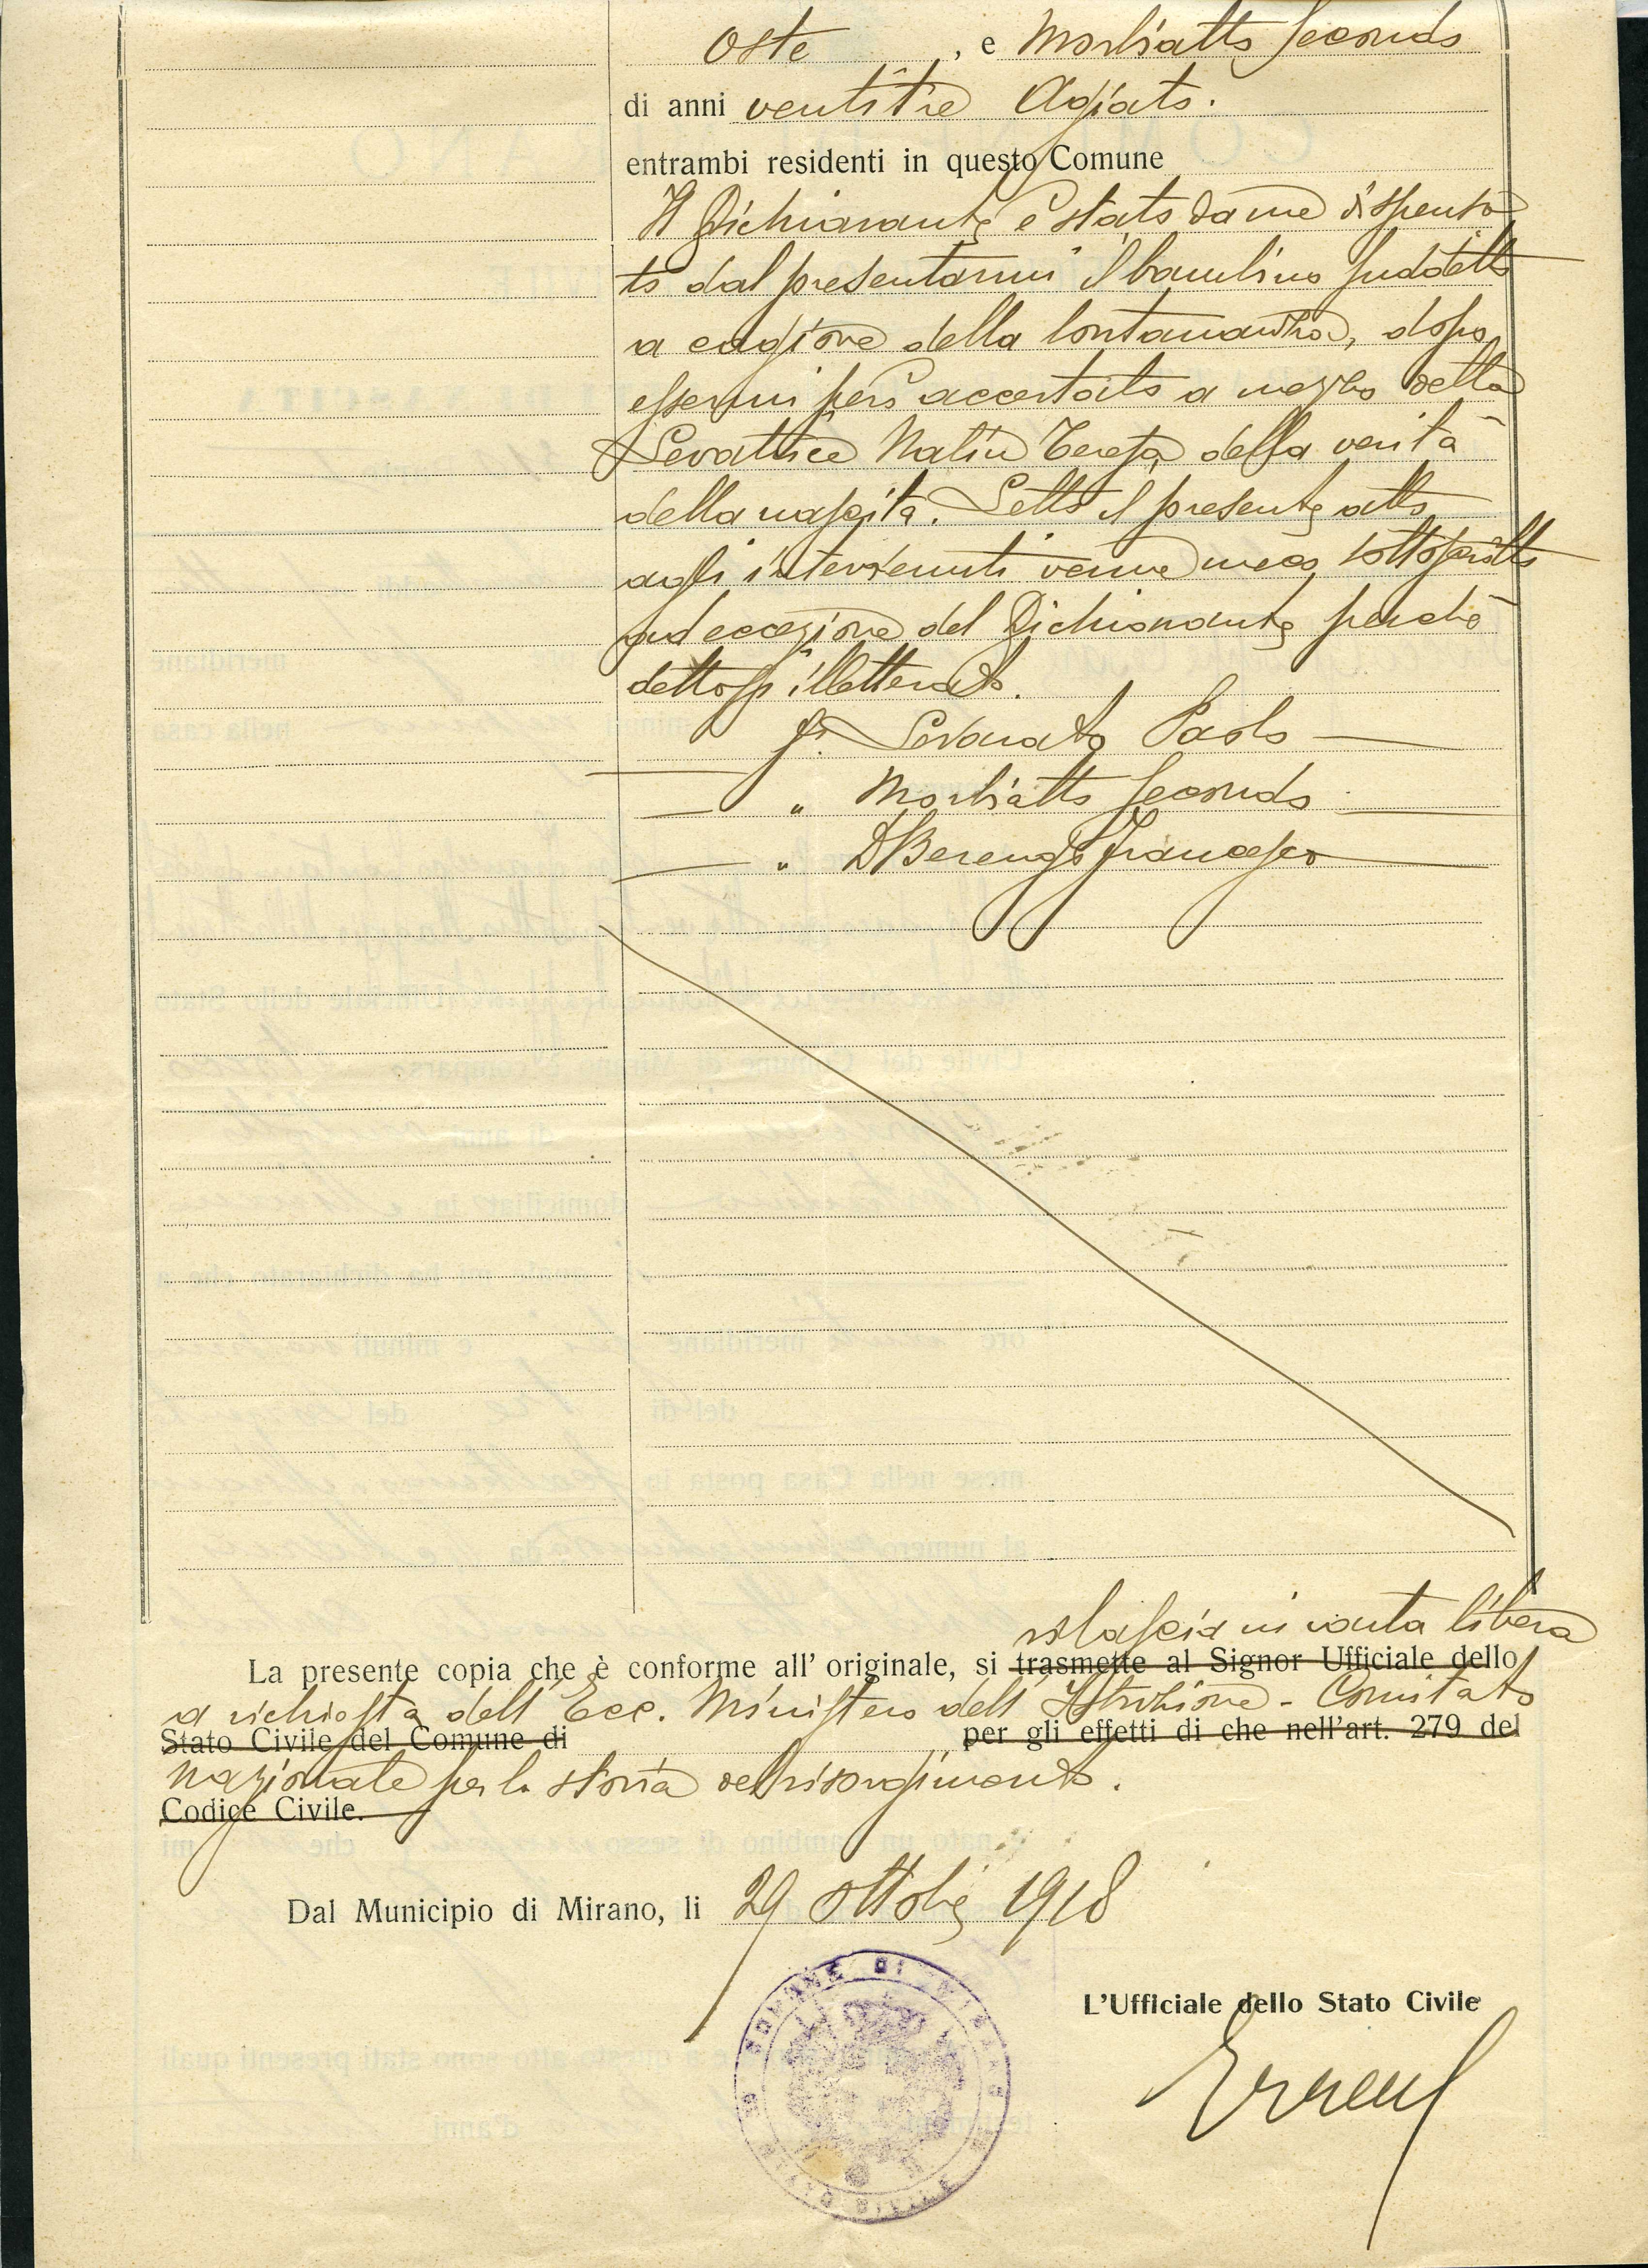 Oste , e Morbiatto Secondo
di anni ventitre Agiato.
entrambi residenti in questo Comune
Il Dichiarante è stato da me dispensa
to dal presentarmi il bambino suddetto
a cagione della lontananza, dopo
essermi però accertato a mezzo della
Levatrice Natin Teresa della verità
della nascita. Letto il presente atto
agli intervenuti venne meco sottoscritto
ad eccezione del Dichiarante perchè
dettosi illetterato.
fo. Levorato Paolo
" Morbiatto Secondo
" D Berengo Francesco
rilascia in carta libera
La presente copia che è conforme all' originale, si trasmette al Signor Ufficiale dello
a richiesta dell' Ecc. Ministero dell' Istruzione - Comitato
Stato Civile del Comune di per gli effetti di che nell'art. 279 del
nazionale per la storia del risorgimento.
Codice Civile.
Dal Municipio di Mirano, li 29 ottobre 1918
COMUNE DI MIRANO
STATO CIVILE
L'Ufficiale dello Stato Civile